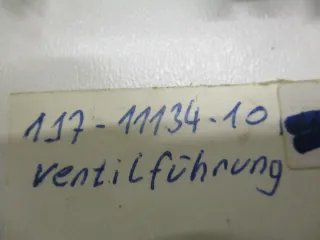 117-11134-10
Ventilführung